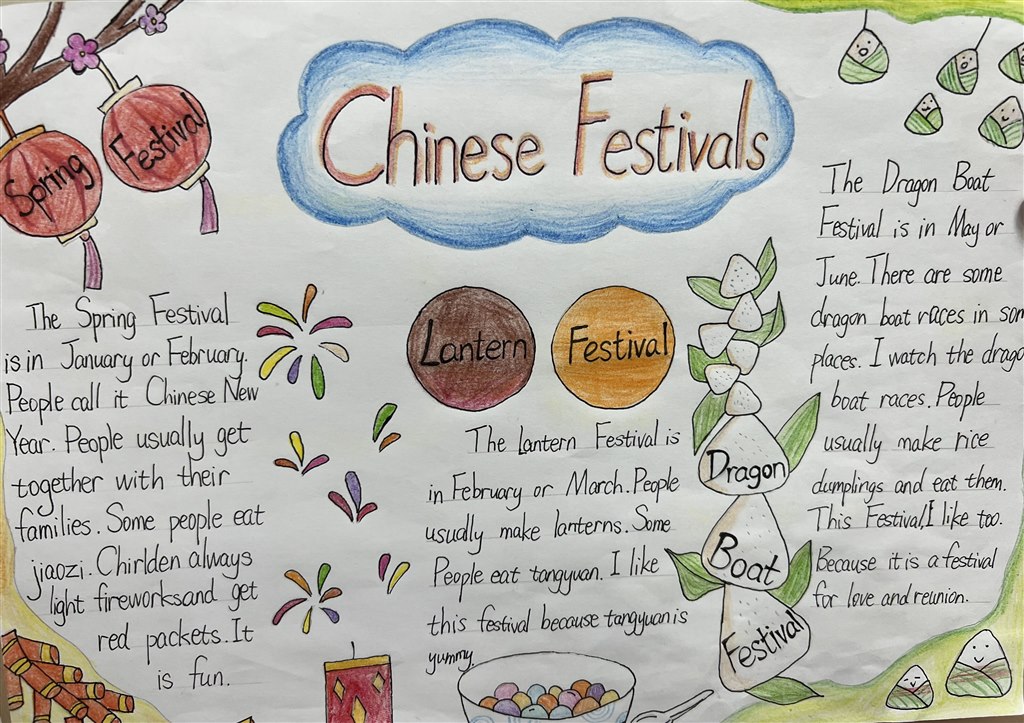 Chinese Festivals
Spring
Festival
The Spring Festival
is in January or February.
People call it Chinese New
Year. People usually get
together with their
families. Some people eat
jiaozi. Chirlden always
light fireworksand get
red packets. It
is fun.
Lantern
Festival
The Lantern Festival is
in February or March. People
usually make lanterns. Some
People eat tangyuan. I like
this festival because tangyuan is
yummy.
Dragon
Boat
Festival
The Dragon Boat
Festival is in May or
June. There are some
dragon boat races in som
places. I watch the drago
boat races. People
usually make rice
dumplings and eat them.
This Festival, I like too.
Because it is a festival
for love and reunion.